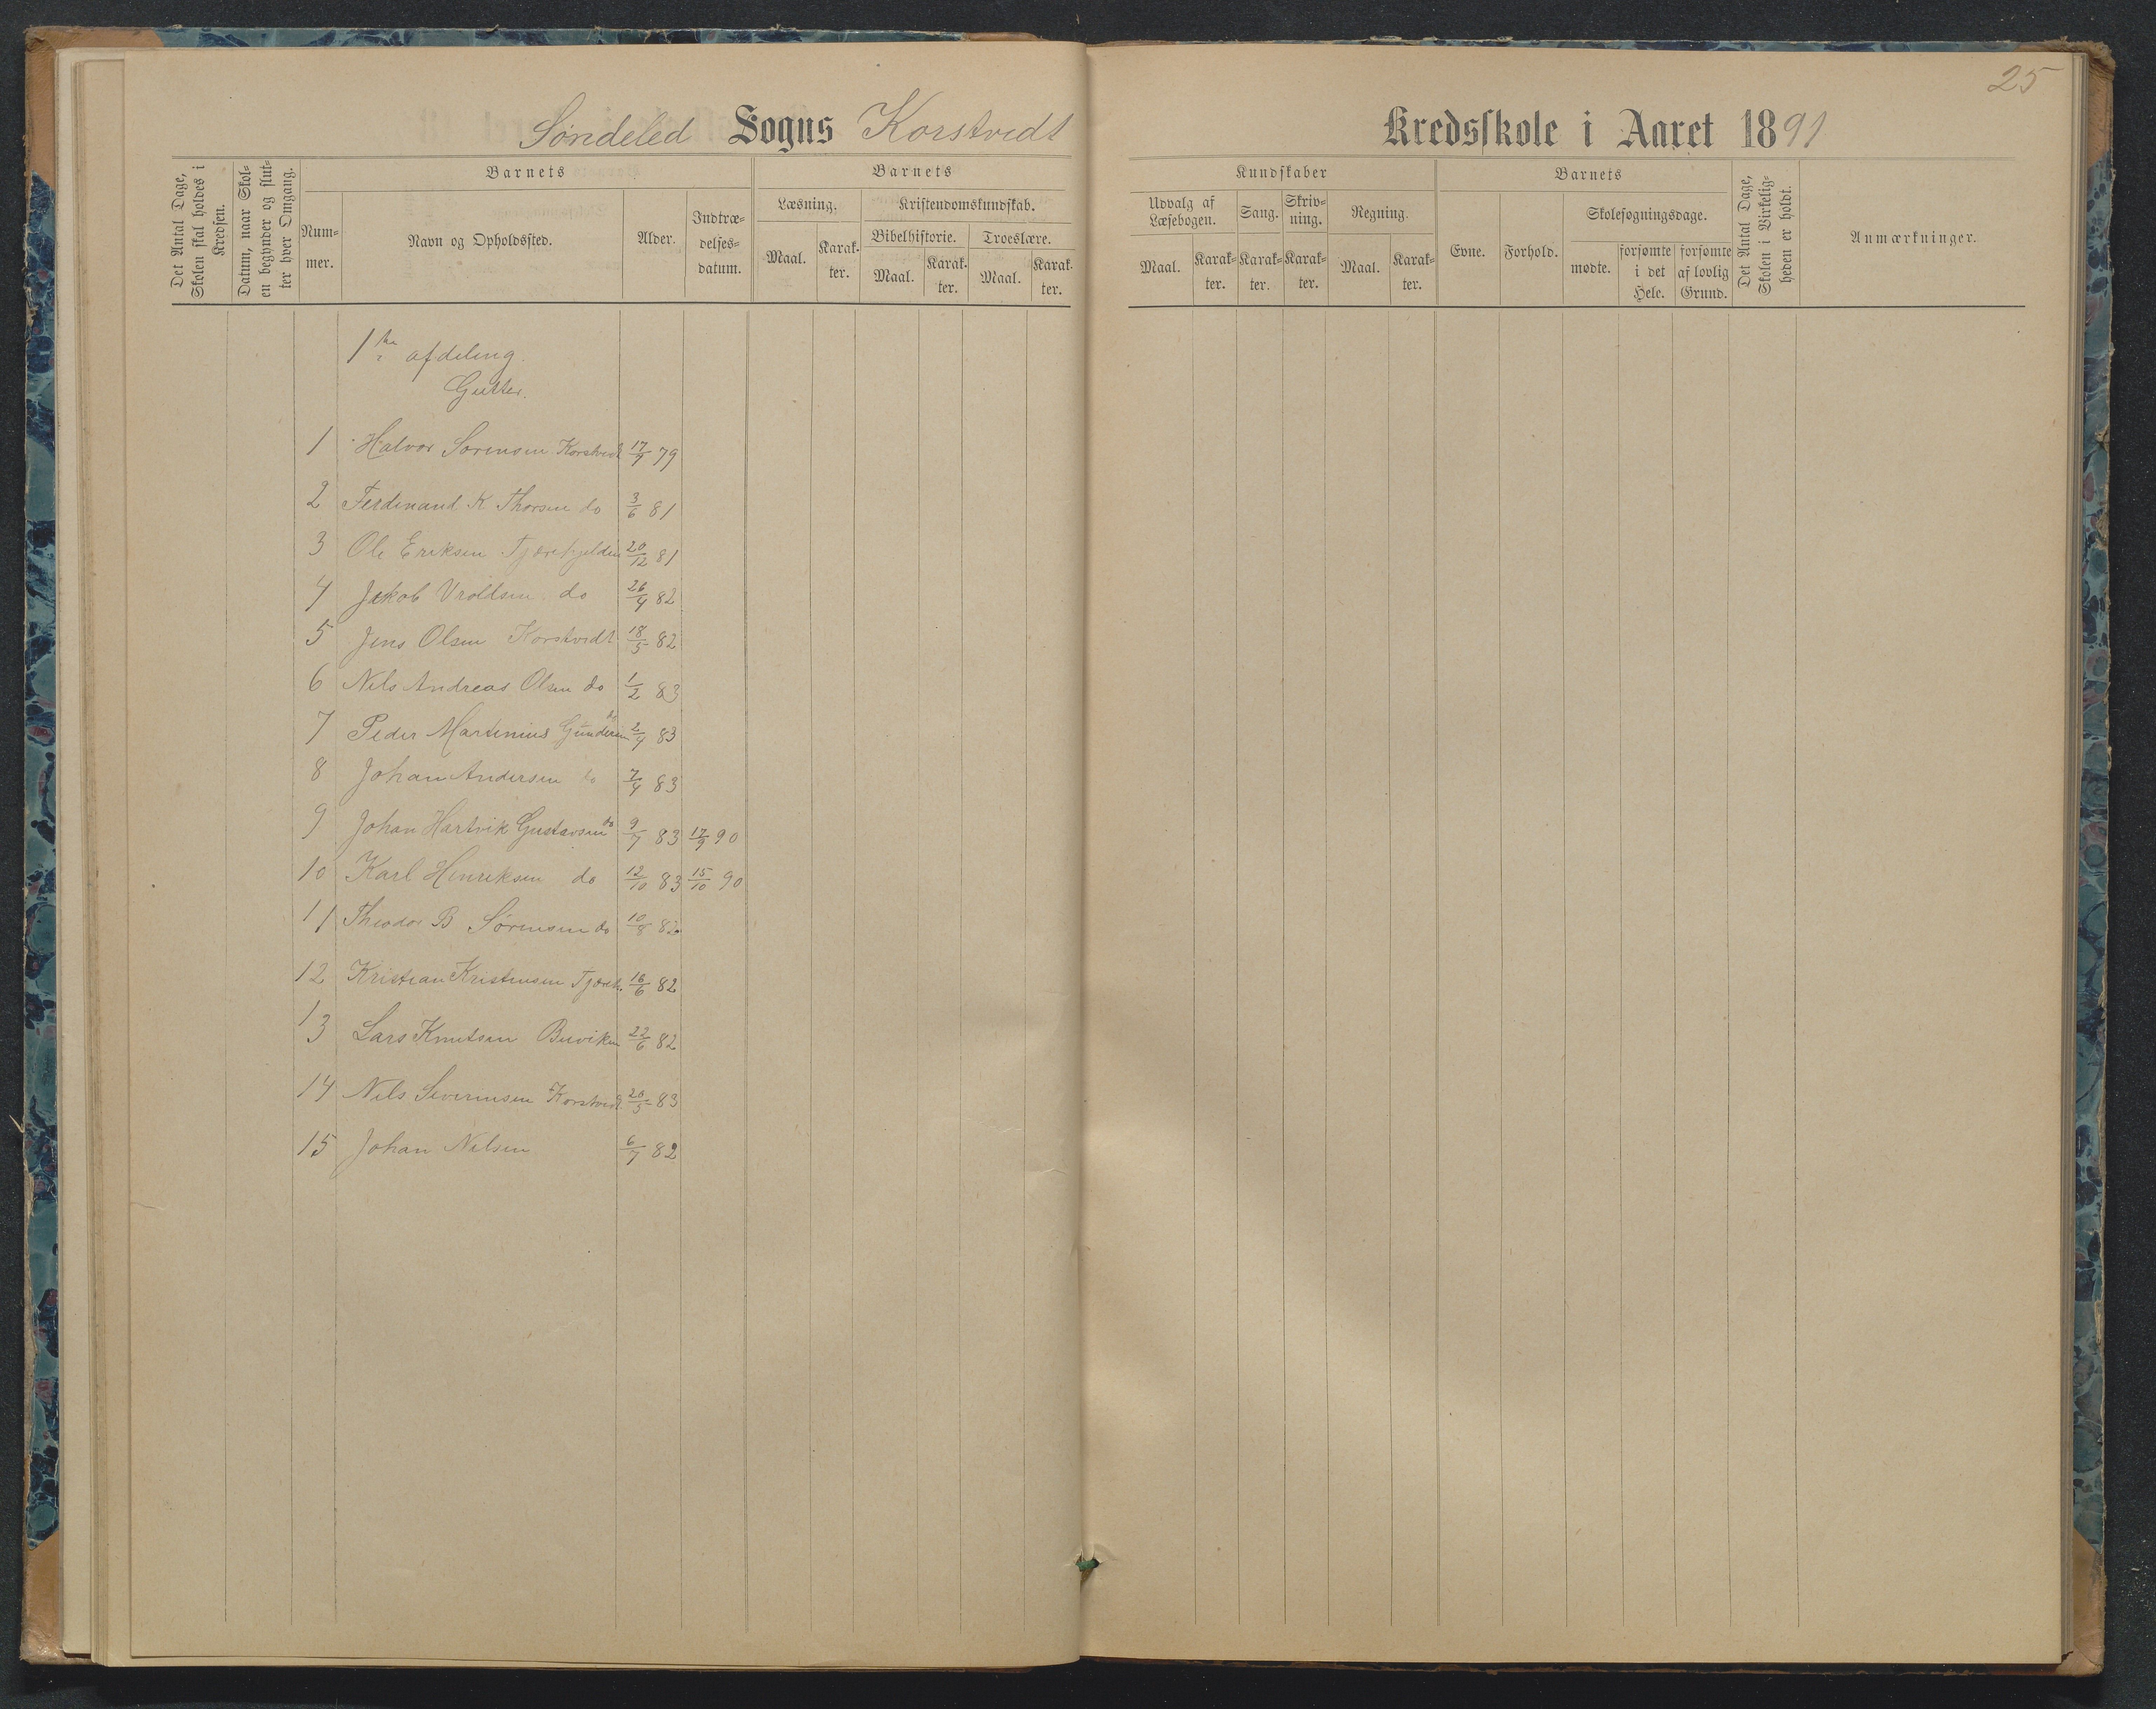 25
Søndeled Sogns Korstvedt Kredsskole i Aaret 1891
Det Antal Dage, Skolen skal holdes i Kredsen.
Datum, naar Skolen begynder og slutter hver Omgang.
Barnets
Nummer.
Navn og Opholdssted.
Alder.
Indtrædelsesdatum.
Barnets
Læsning.
Maal.
Karakter.
Kristendomskundskab.
Bibelhistorie.
Maal.
Karakter.
Troeslære.
Maal.
Karakter.
Kundskaber
Udvalg af Læsebogen.
Maal.
Karakter.
Sang.
Karakter.
Skrivning.
Karakter.
Regning.
Maal.
Karakter.
Barnets
Evne.
Forhold.
Skolesøgningsdage.
mødte.
forsømte i det Hele.
forsømte af lovlig Grund.
Det Antal Dage, Skolen i Virkeligheden er holdt.
Anmærkninger.
1ste afdeling.
Gutter.
1 Halvor Sørensen Korstvedt 17/9 79
2 Ferdinand K Thorsen do 3/6 81
3 Ole Eriksen 20/12 81
4 Jakob Vroldsen do 26/4 82
5 Jens Olsen Korstvedt 18/5 82
6 Nils Andreas Olsen do 1/2 83
7 Peder Martinius Gundersen do 2/4 83
8 Johan Andersen do 7/4 83
9 Johan Hartvik Gustavsen do 9/7 83 17/9 90
10 Karl Henriksen do 12/10 83 15/10 90
11 Theodor B Sørensen do 10/8 82
12 Kristian Kristensen 16/6 82
13 Lars Knutsen Buviken 22/6 82
14 Nils Severinsen Korstvedt 20/5 83
15 Johan Nilsen 6/7 82